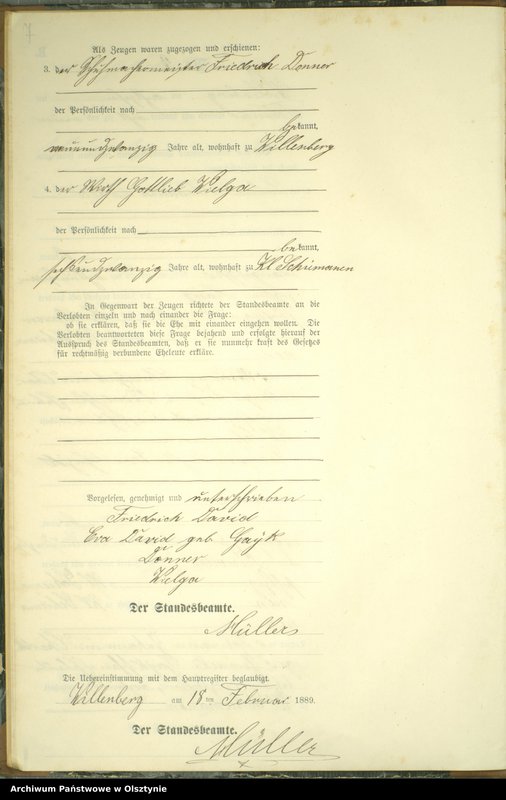 7
Als Zeugen waren zugezogen und erschienen:
3. der Schuhmachermeister Friedrich Donner
der Persönlichkeit nach
bekannt,
neunundzwanzig Jahre alt, wohnhaft zu Willenberg
4. der Wirth Gottlieb Kulga
der Persönlichkeit nach
bekannt,
sechsundzwanzig Jahre alt, wohnhaft zu Kl Schiemanen
In Gegenwart der Zeugen richtete der Standesbeamte an die
Verlobten einzeln und nach einander die Frage:
ob sie erklären, daß sie die Ehe mit einander eingehen wollen. Die
Verlobten beantworteten diese Frage bejahend und erfolgte hierauf der
Ausspruch des Standesbeamten, daß er sie nunmehr kraft des Gesetzes
für rechtmäßig verbundene Eheleute erkläre.
Vorgelesen, genehmigt und unterschrieben
Friedrich David
Eva David geb. Gayk
Donner
Kulga
Der Standesbeamte.
Müller
Die Uebereinstimmung mit dem Hauptregister beglaubigt.
Willenberg am 18 ten Februar 1889.
Der Standesbeamte.
Müller
Archiwum Państwowe w Olsztynie